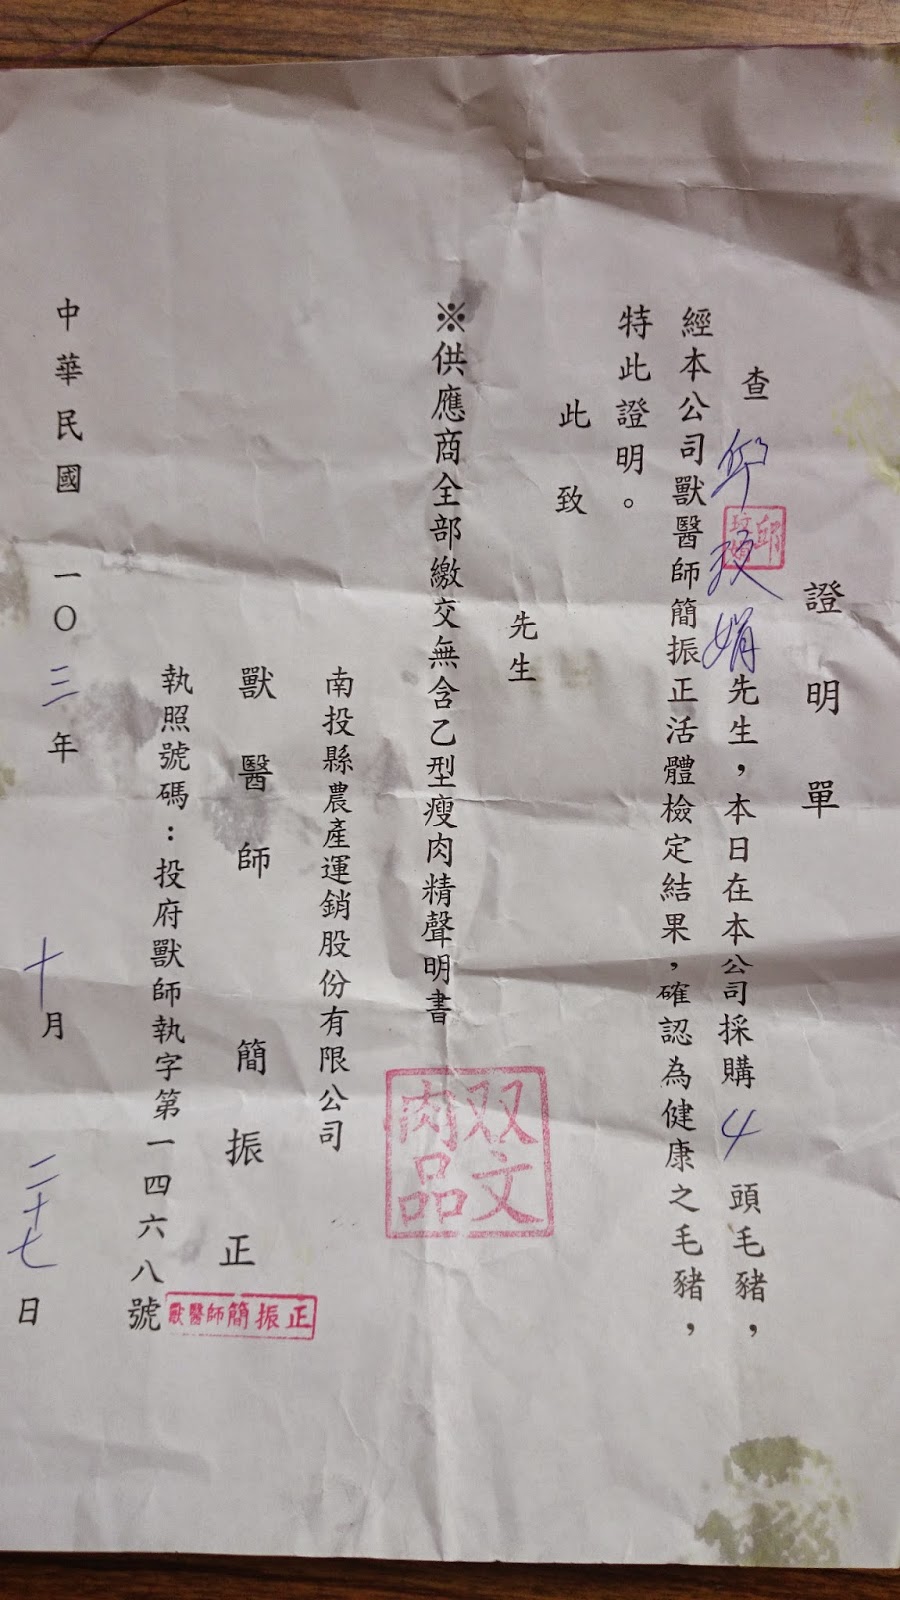 證明單
查邱玟娟先生，本日在本公司採購4頭毛豬，
經本公司獸醫師簡振正活體檢定結果，確認為健康之毛豬，
特此證明。
此致
先生
※供應商全部繳交無含乙型瘦肉精聲明書
双文肉品
南投縣農產運銷股份有限公司
獸醫師 簡振正
獸醫師簡振正
執照號碼：投府獸師執字第一四六八號
中華民國一〇三年十月二十七日